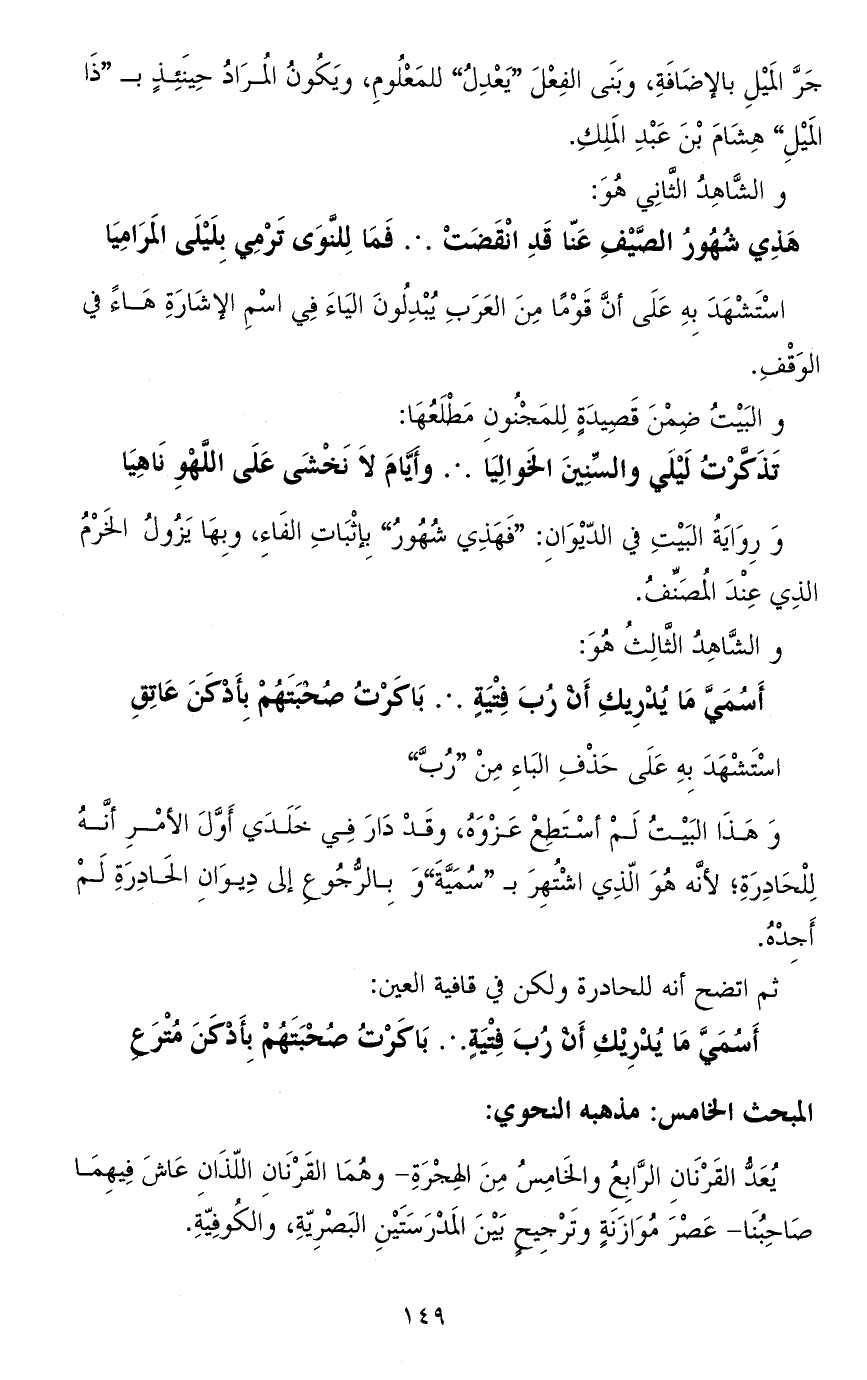 جَرَّ المَيْلِ بالإضَافَةِ، وبَنَى الفِعْلَ ”يَعْدِلُ“ للمَعْلُومِ، ويَكُونُ المُـرَادُ حِينَئِـذٍ بـ ”ذَا
المَيْلِ“ هِشَامَ بْنَ عَبْدِ المَلِكِ.
و الشَّاهِدُ الثَّانِي هُوَ:
هَذِي شُهُورُ الصَّيْفِ عَنَّا قَدِ انْقَضَتْ .٠. فَمَا لِلنَّوَى تَرْمِي بِلَيْلَى المَرَامِيَا
اسْتَشْهَدَ بِهِ عَلَى أنَّ قَوْمًا مِنَ العَرَبِ يُبْدِلُونَ اليَاءَ فِي اسْمِ الإشَارَةِ هَـاءً في
الوَقْفِ.
و البَيْتُ ضِمْنَ قَصِيدَةٍ لِلمَجْنُونِ مَطْلَعُهَا:
تَذَكَّرْتُ لَيْلَي والسِّنِينَ الخَوالِيَا .٠. وأيَّامَ لاَ نَخْشَى عَلَى اللَّهْوِ نَاهِيَا
وَ رِوَايَةُ البَيْتِ في الدِّيْوَانِ: ”فَهَذِي شُهُورُ“ بإثْبَاتِ الفَاءِ، وبِهَا يَزُولُ الخَرْمُ
الذِي عِنْدَ المُصَنِّفُ.
و الشَّاهِدُ الثَّالِثُ هُوَ:
أَسُمَيَّ مَا يُدْرِيكِ أَنْ رُبَ فِتْيَةٍ .٠. بَاكَرْتُ صُحْبَتَهُمْ بِأَدْكَنَ عَاتِقِ
اسْتَشْهَدَ بِهِ عَلَى حَذْفِ البَاءِ مِنْ ”رُبَّ“
وَ هَـذَا البَيْـتُ لَـمْ أسْتَطِعْ عَـزْوَهُ، وقَـدْ دَارَ فِـي خَلَـدَي أَوَّلَ الأمْـرِ أنَّـهُ
لِلْحَادِرَةِ؛ لأنَّه هُوَ الّذِي اشْتُهِرَ بـ ”سُمَيَّةَ“وَ بِـالرُّجُوعِ إلى دِيـوَانِ الحَـادِرَةِ لَـمْ
أَجِدْهُ.
ثم اتضح أنه للحادرة ولكن في قافية العين:
أَسُمَيَّ مَا يُدْرِيْكِ أَنْ رُبَ فِتْيَةٍ.٠. بَاكَرْتُ صُحْبَتَهُمْ بِأَدْكَنَ مُتْرَعِ
المبحث الخامس: مذهبه النحوي:
يُعَدُّ القَرْنَانِ الرَّابِعُ والخَامِسُ مِنَ الهِجْرَةِ- وهُمَا القَرْنَانِ اللّذَانِ عَاشَ فِيهِمَـا
صَاحِبُنَا- عَصْرَ مُوَازَنَةٍ وتَرْجِيحٍ بَيْنَ المَدْرَسَتَيْنِ البَصْرِيّةِ، والكُوفِيّةِ.
١٤٩